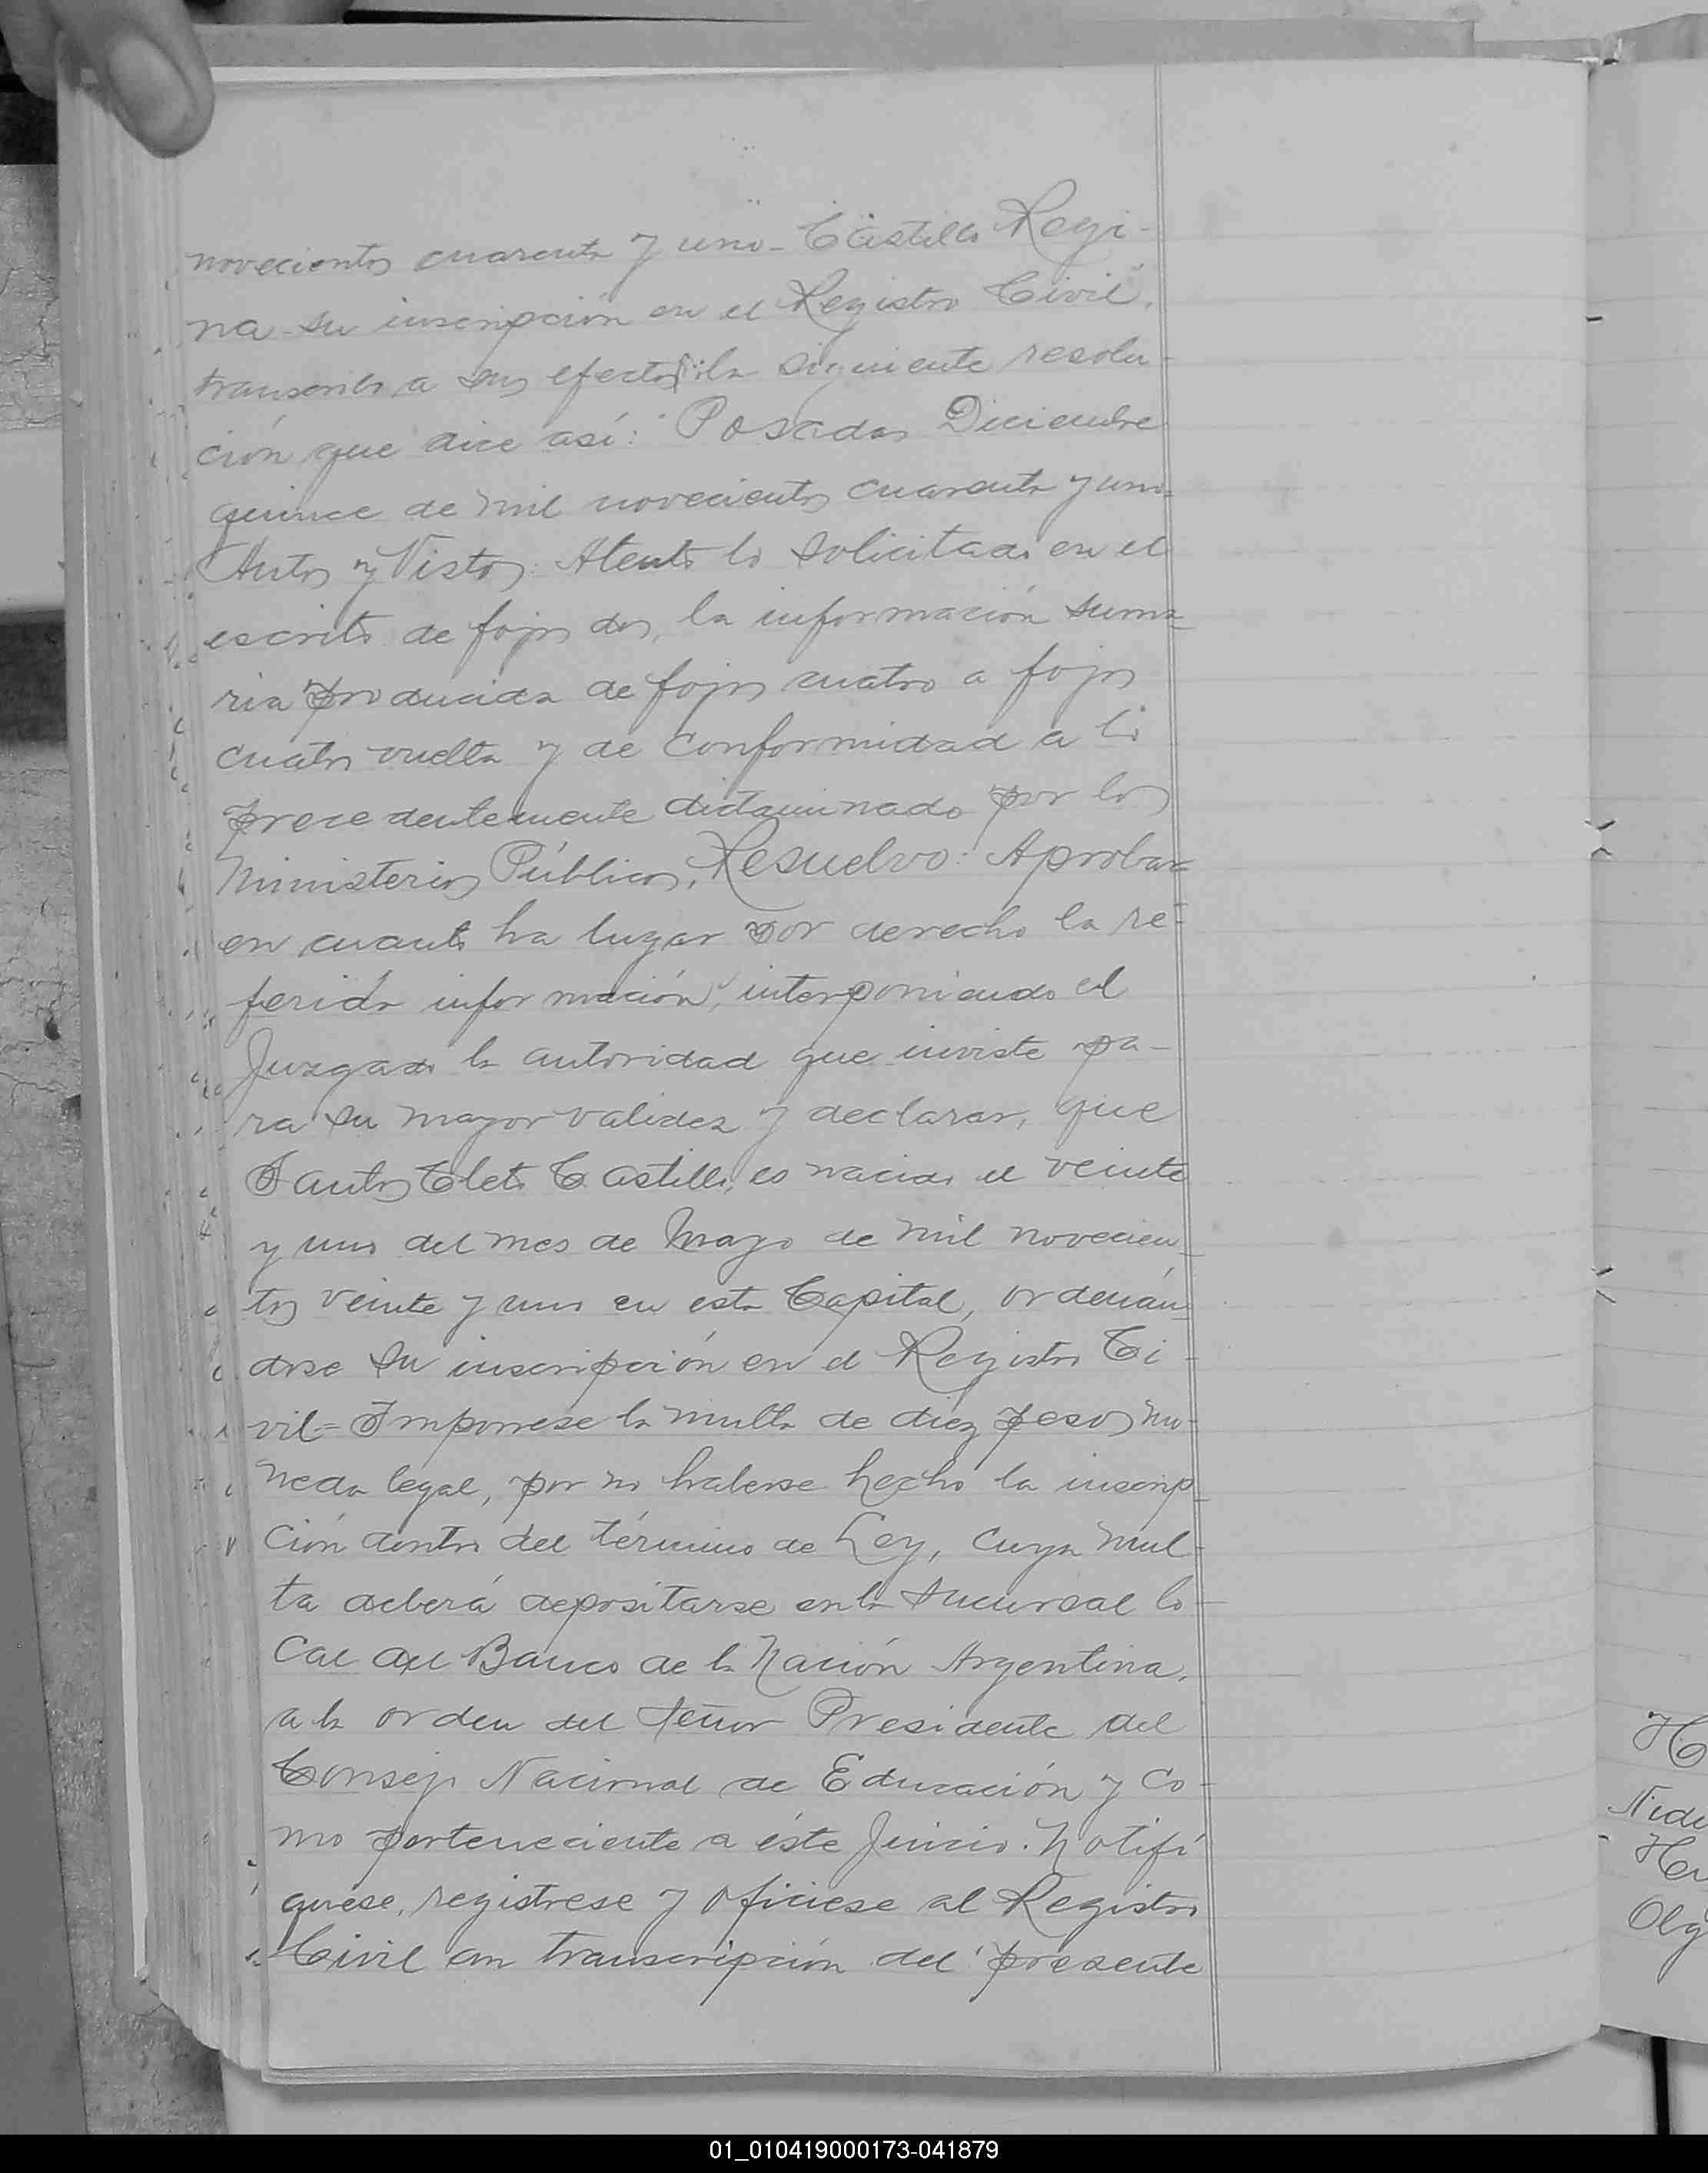 novecientos cuarenta y uno - Castillo Regi-
na su inscripción en el Registro Civil",
transcribo a sus efectos la siguiente resolu-
ción que dice así: Posadas Diciembre
quince de mil novecientos cuarenta y uno.
Autos y Vistos: Atento lo solicitado en el
escrito de fojas dos, la información suma-
ria producida de fojas cuatro a fojas
cuatro vuelta y de conformidad a lo
precedentemente dictaminado por los
Ministerios Públicos, Resuelvo: Aprobar
en cuanto ha lugar por derecho la re-
ferida información, interponiendo el
Juzgado la autoridad que inviste pa-
ra su mayor validez y declarar, que
Santos Cleto Castillo, es nacido el veinte
y uno del mes de Mayo de mil novecien-
tos veinte y uno en esta Capital, ordenán-
dose su inscripción en el Registro Ci-
vil= Imponese la multa de diez pesos mo-
neda legal, por no haberse hecho la inscrip-
ción dentro del término de Ley, cuya mul-
ta deberá depositarse en la sucursal lo-
cal del Banco de la Nación Argentina,
a la orden del señor Presidente del
Consejo Nacional de Educación y co-
mo perteneciente a éste Juicio. Notifí
quese, registrese y ofíciese al Registro
Civil con transcripción del presente
Olg
01_010419000173-041879